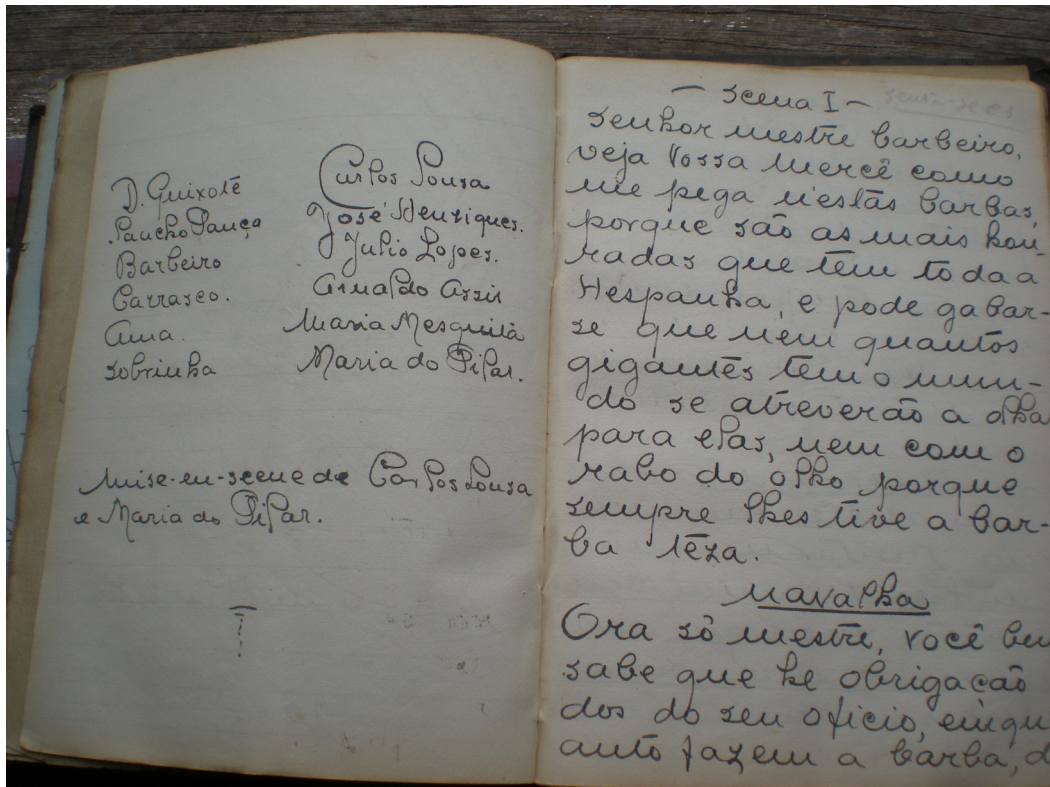 D. Quixote Carlos Sousa
Sancho Pança José Henriques.
Barbeiro Julio Lopes.
Carrasco. Arnaldo Assis
Ama. Maria Mesquita
Sobrinha Maria do Pilar.
Mise-en-scene de Carlos Sousa
e Maria do Pilar.
— Scena I —
Senhor mestre barbeiro,
veja Vossa Mercê como
me pega n'estas barbas,
porque são as mais hon-
radas que tem toda a
Hespanha, e pode gabar-
se que nem quantos
gigantes tem o mun-
do se atreverão a olha
para elas, nem com o
rabo do olho porque
sempre lhes tive a bar-
ba têza.
Navalha
Ora só mestre, você bem
sabe que he obrigação
dos do seu oficio, emqu
anto fazem a barba, d